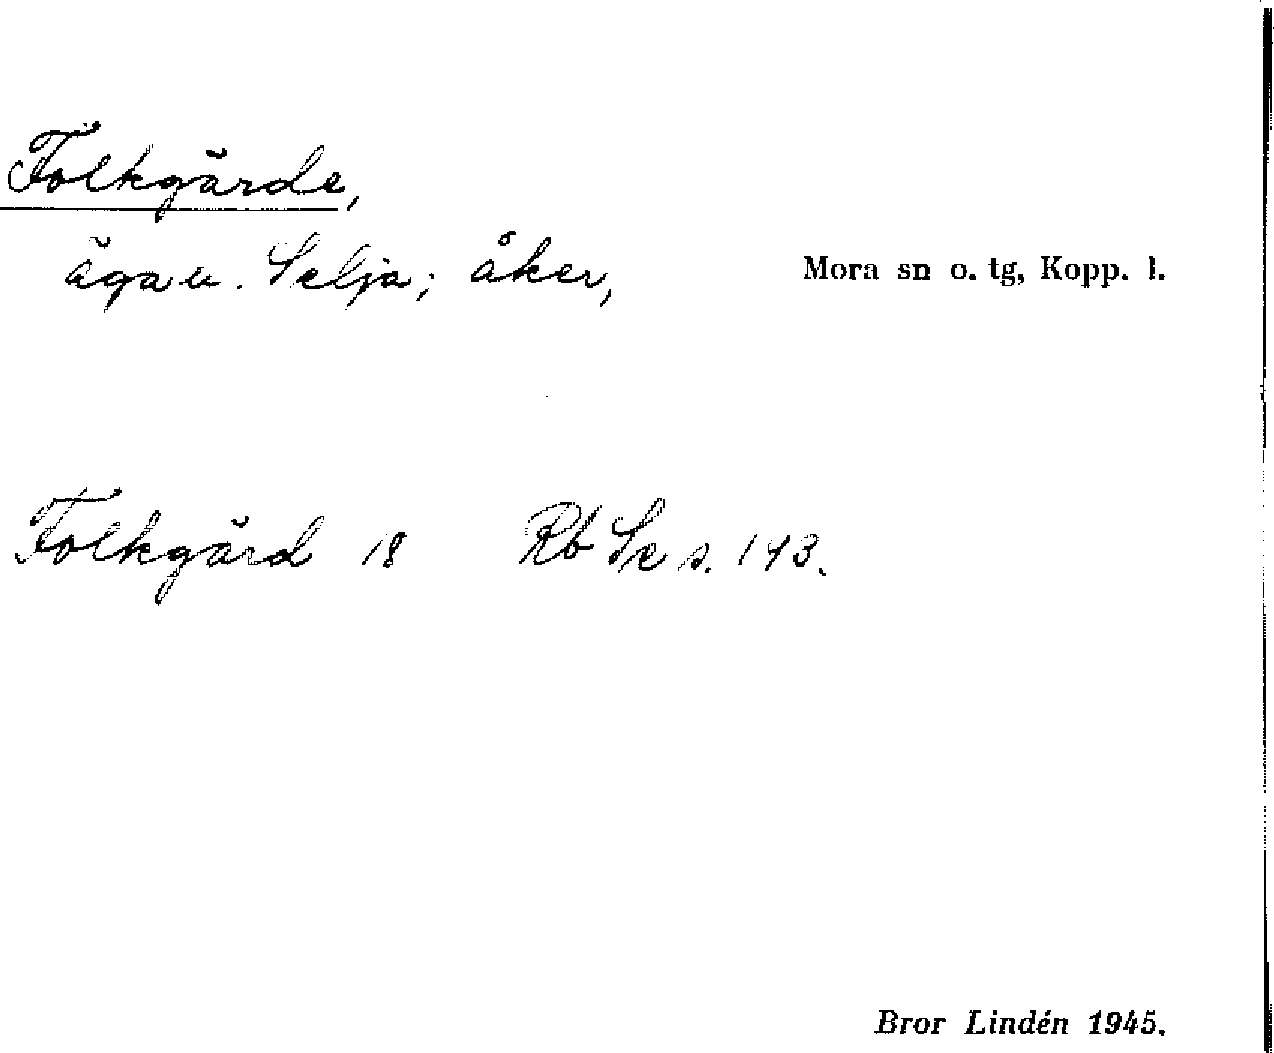 Folkgärde,
äga u. Selja; åker, Mora sn o. tg, Kopp. l.
Folkgärd 18 Rb Se s. 143.
Bror Lindén 1945.